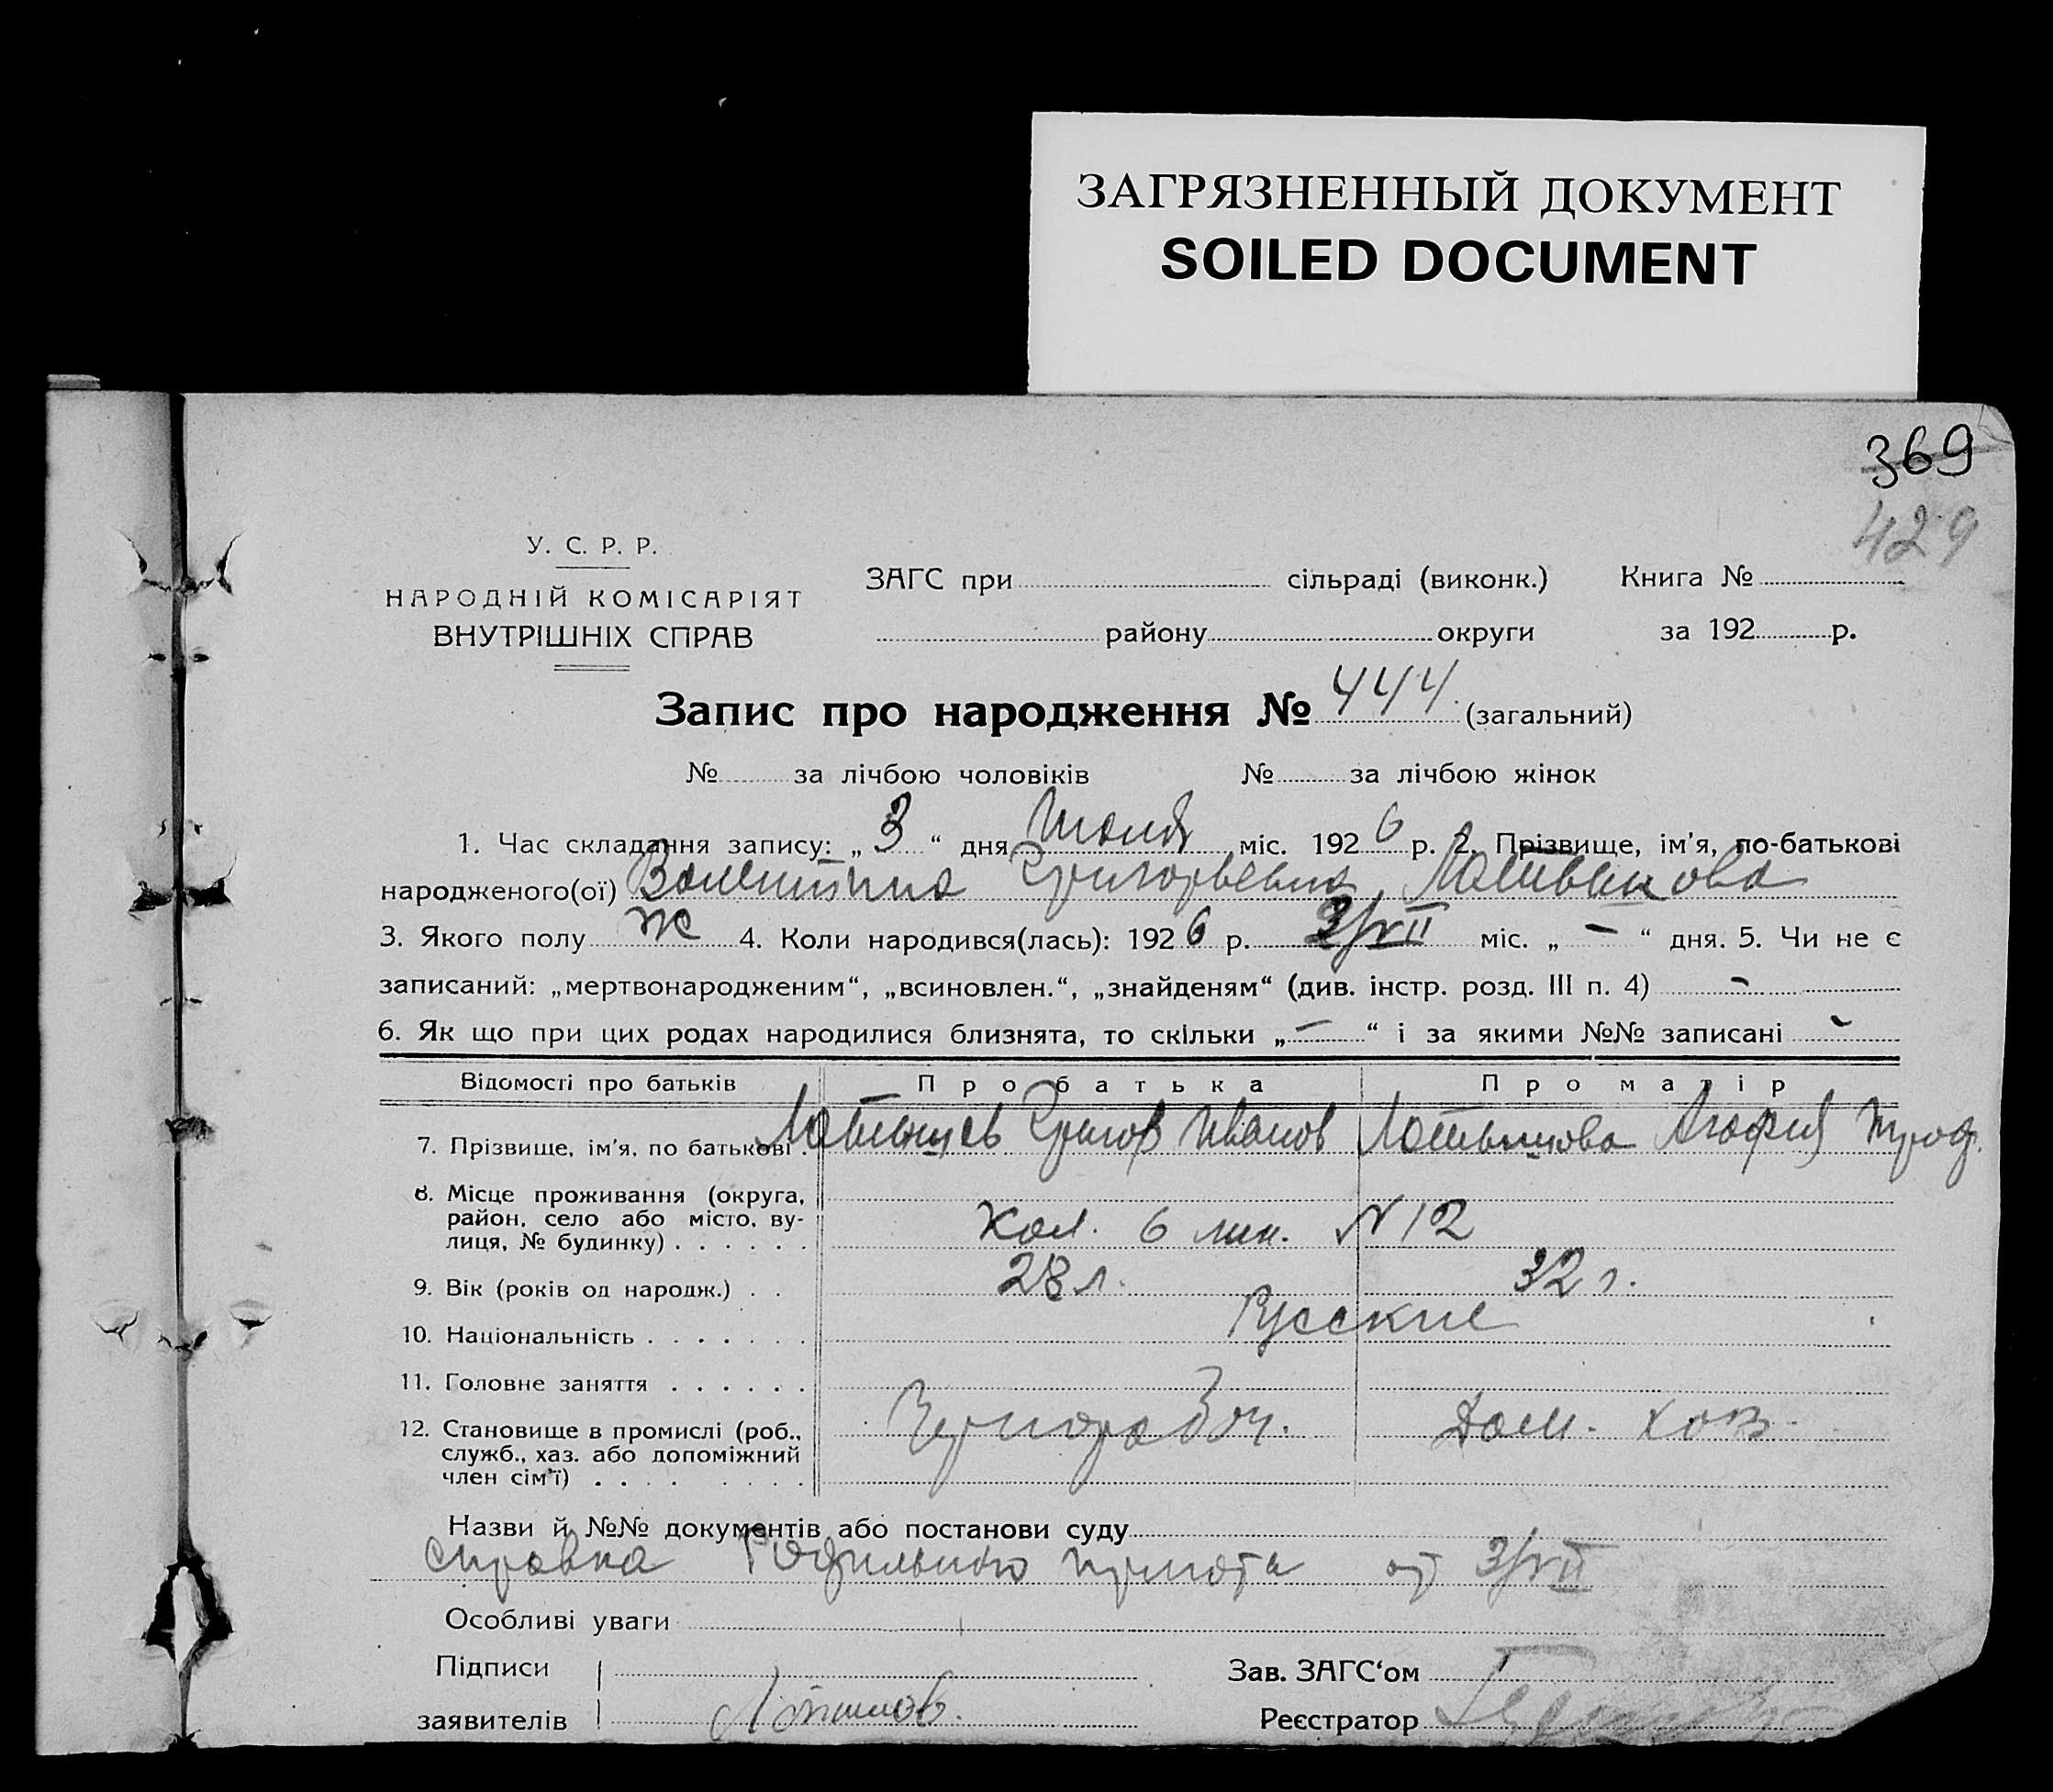 ЗАГРЯЗНЕННЫЙ ДОКУМЕНТ
SOILED DOCUMENT
369
429
У. С. Р. Р.
НАРОДНІЙ КОМІСАРІЯТ
ВНУТРІШНІХ СПРАВ
ЗАГС при сільраді (виконк.) Книга №
району округи за 192 р.
Запис про народження № 444 (загальний)
№ за лічбою чоловіків № за лічбою жінок
1. Час складання запису: „3“ дня Июля міс. 1926 р. 2. Прізвище, ім'я, по-батькові
народженого(ої) Валентина Григорьевна
3. Якого полу ж 4. Коли народився(лась): 1926 р. 2/VII міс. „-“ дня. 5. Чи не є
записаний: „мертвонародженим“, „всиновлен.“, „знайденям“ (див. інстр. розд. III п. 4) -
6. Як що при цих родах народилися близнята, то скільки „-“ і за якими №№ записані -
Відомості про батьків Про батька Про матір
7. Прізвище, ім'я, по батькові . Латышев Григор Иванов Латышова Агафия Троф.
8. Місце проживання (округа,
район, село або місто, ву-
лиця, № будинку) . . . . . . 6 лин. N 12
9. Вік (років од народж.) . . 28 л. 32 г.
10. Національність . . . . . . Русские
11. Головне заняття . . . . . .
12. Становище в промислі (роб., Чернорабоч. Дом. хоз.
служб., хаз. або допоміжний
член сім'ї) . . . . . . . .
Назви й №№ документів або постанови суду
справка Родильного приюта от 3/VII
Особливі уваги
Підписи Зав. ЗАГС‘ом
заявителів Реєстратор